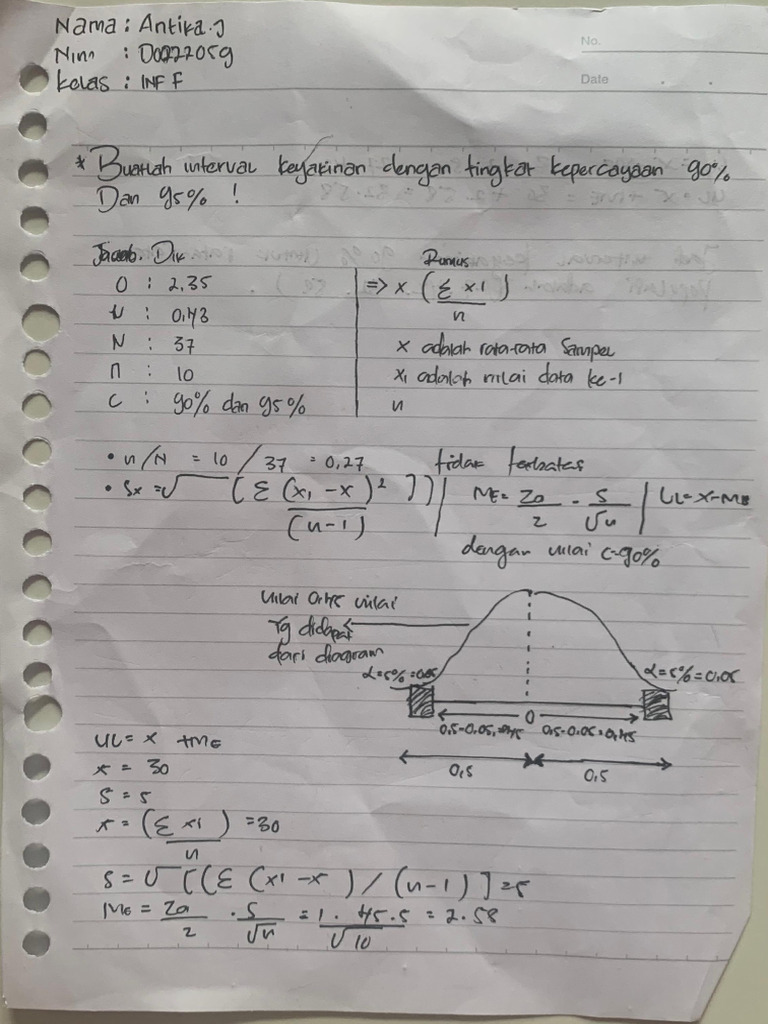 Nama : Antika.J
Nim : D0222059
Kelas : INF F
No.
Date
* Buatlah interval keyakinan dengan tingkat kepercayaan 90%
Dan 95% !
Jawab. Dik
O : 2,35
N : 37
n : 10
C : 90% dan 95%
Rumus
=> x ( Σ x1 ) / n
x adalah rata-rata Sampel
x1 adalah nilai data ke-1
n
• n/N = 10 / 37 = 0,27 tidak terbatas
• Sx = √ [ Σ (x1 - x)² ] / (n-1) | ME = Za/2 . S/√n | UL = x - ME
dengan nilai c=90%
nilai 0.45 nilai
yg didapat
dari diagram
α=5%=0.05
α=5%=0,05
0
0,5-0.05=0.45 0,5-0.05=0,45
0,5 0,5
UL = x + ME
x = 30
S = 5
x = ( Σ x1 ) / n = 30
S = √ [ ( Σ (x1 - x ) / (n-1) ] = 5
ME = Za/2 . S/√n = 1. 45.5 / √10 = 2.58